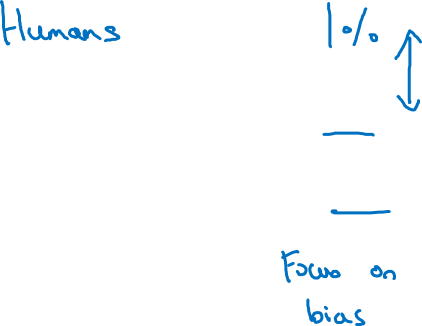 Humans 1%
Focus on
bias